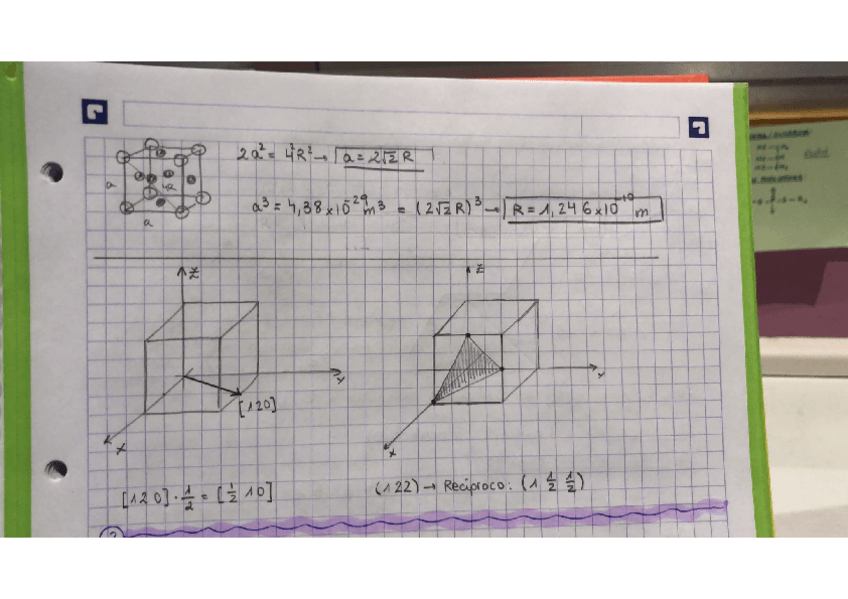 2a² = 4²R² → a = 2√2 R
a
a
4R
a³ = 4,38 x 10⁻²⁹ m³ = (2√2 R)³ → R = 1,246 x 10⁻¹⁰ m
z
z
y
y
[120]
x
x
[120] · 1/2 = [1/2 1 0]
(122) → Recíproco: (1 1/2 1/2)